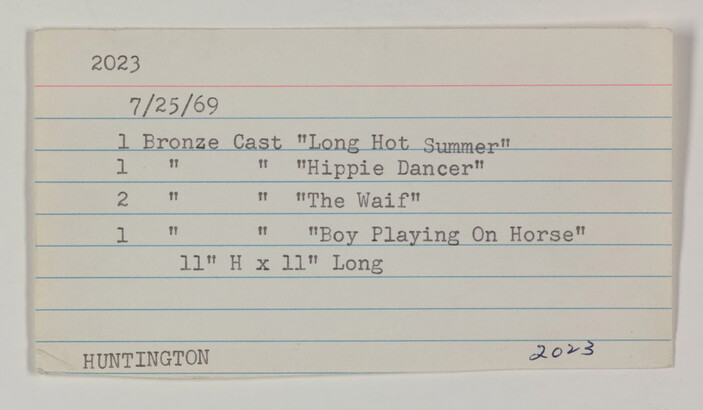 2023
7/25/69
1 Bronze Cast "Long Hot Summer"
1 " " "Hippie Dancer"
2 " " "The Waif"
1 " " "Boy Playing On Horse"
11" H x 11" Long
HUNTINGTON 2023